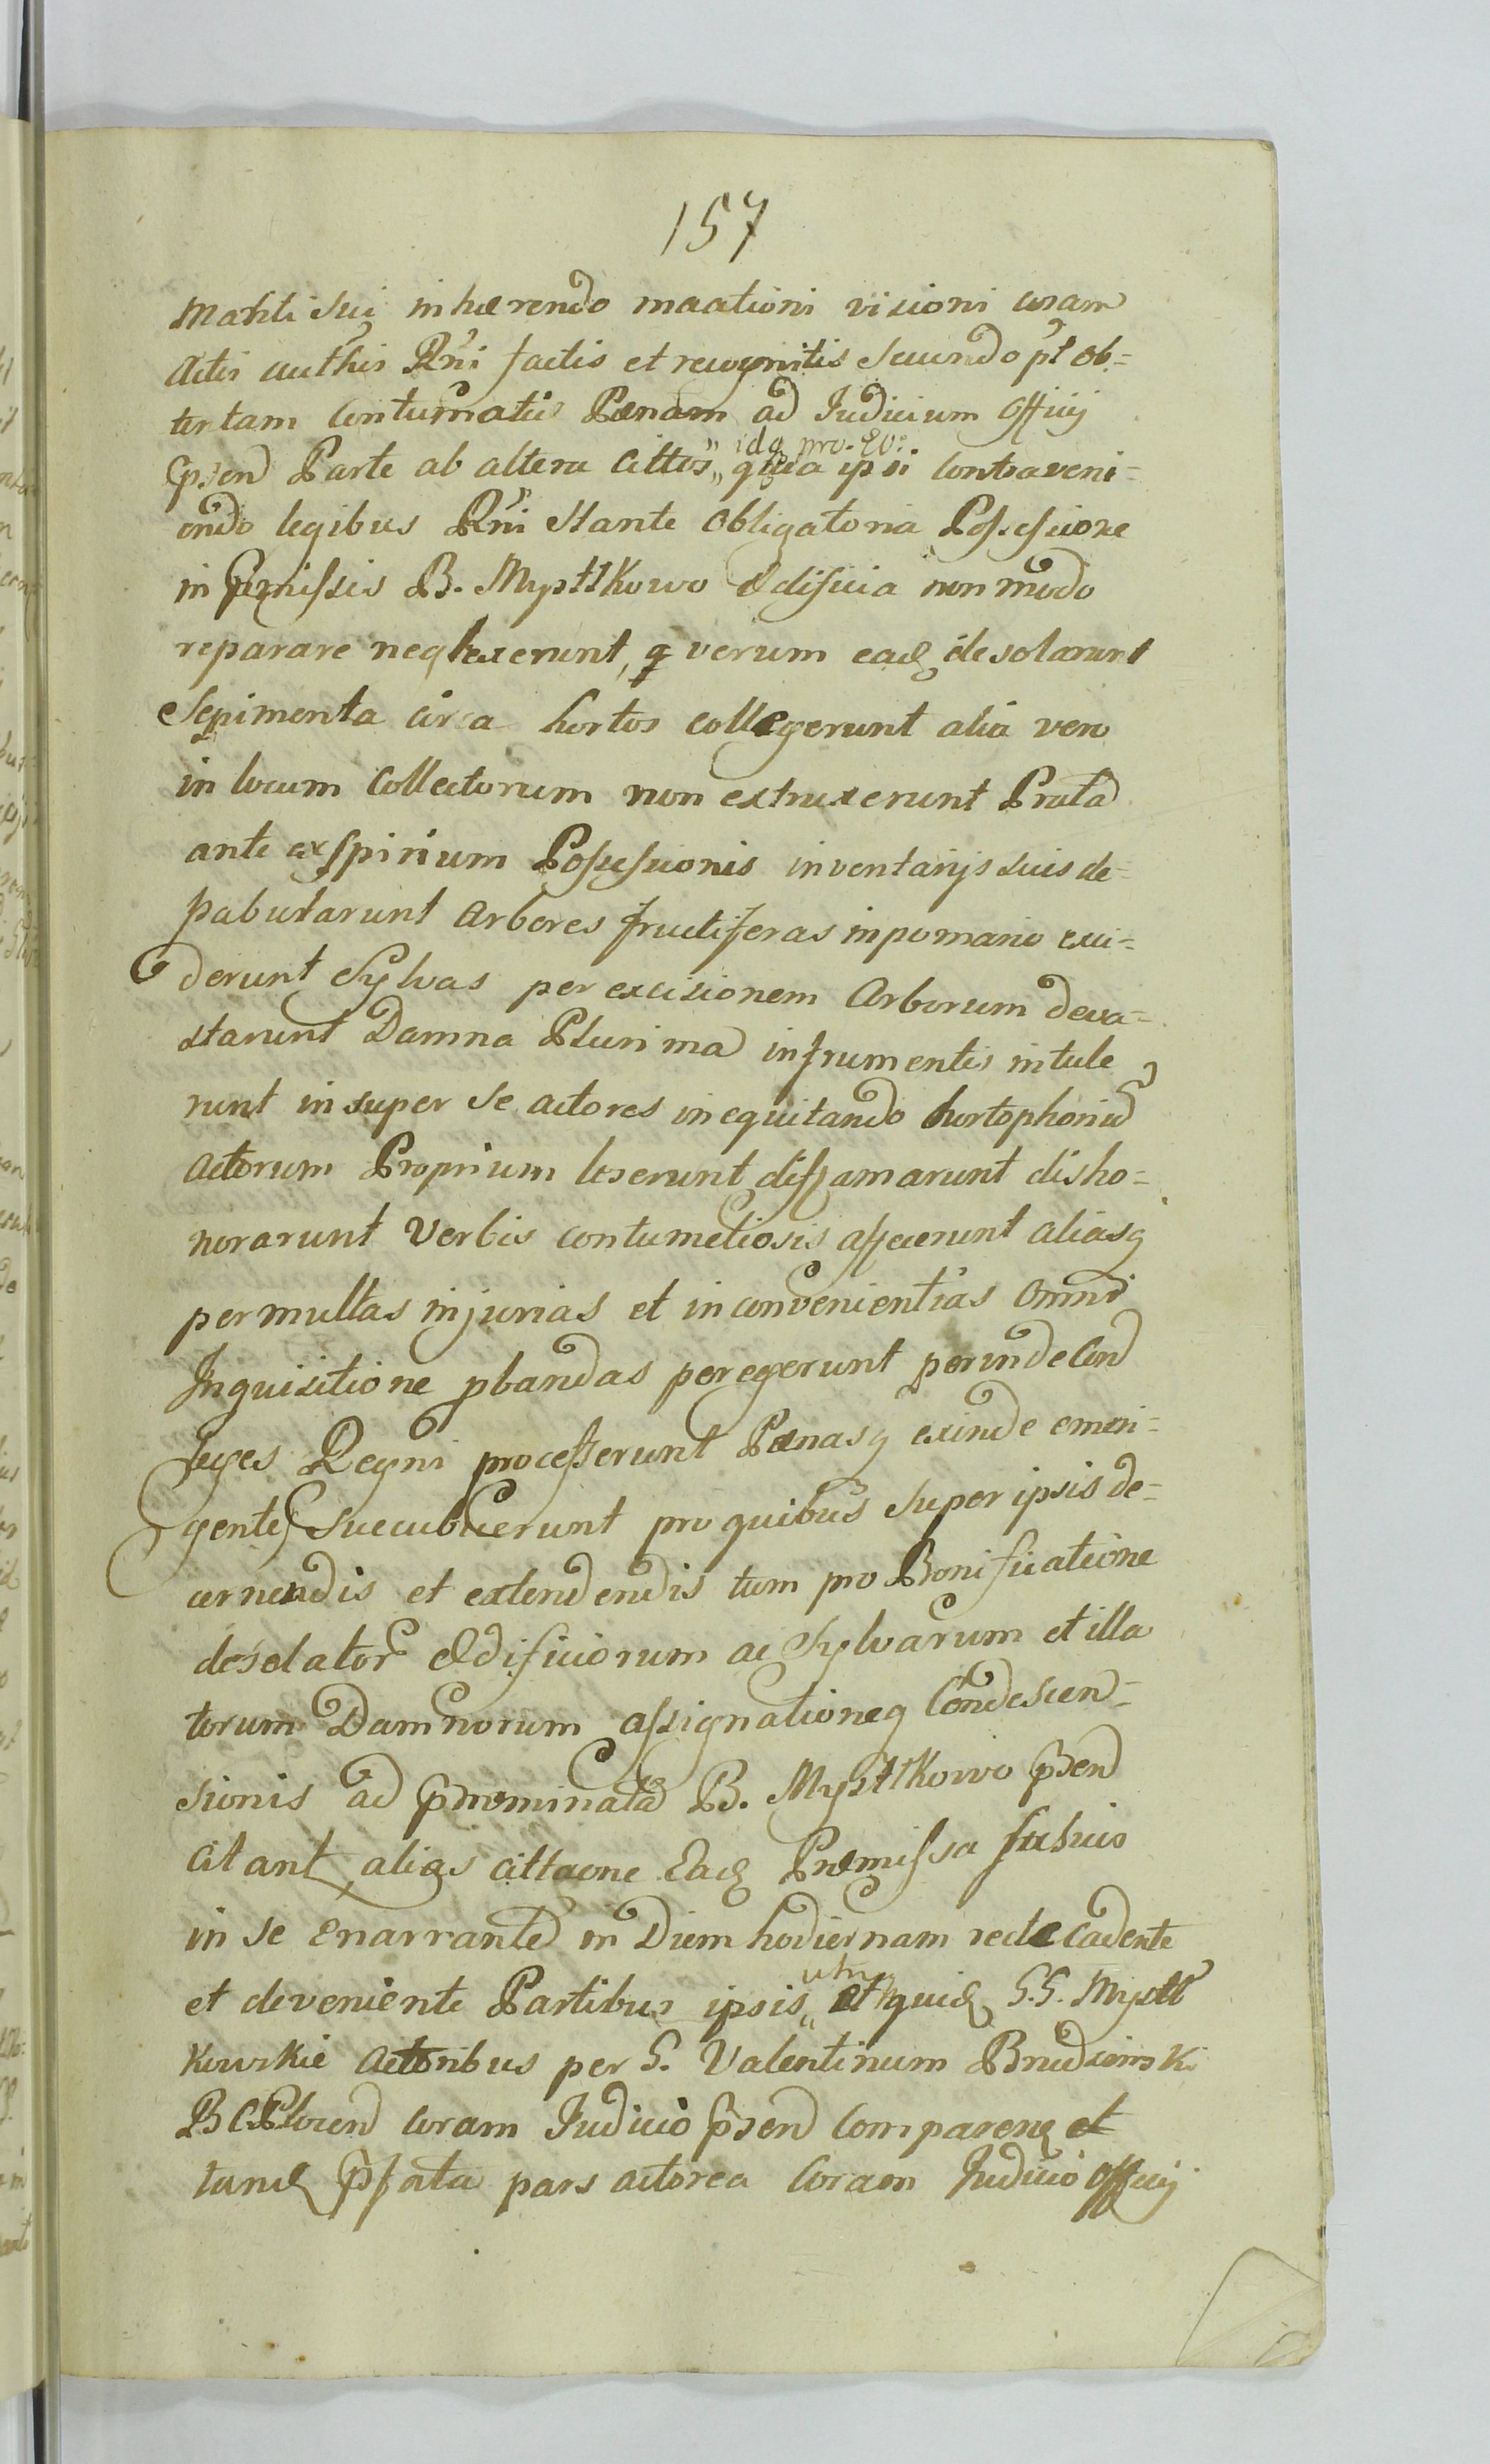 157
Mahti Sui inhærendo maationi visioni coram
Actis authis Rni factis et recognitis Secundo pt ob-
tentam Contumatiæ Pænam ad Iudicium Officij
Psend Parte ab altera Cittos „ idq pro. eo: quia ipsi Contraveni-
endo legibus Rni Stante Obligatoria Possessione
in Pmissis B. Mysttkowo Ædificia non modo
reparare neglexerunt, q verum eadq desolarunt
Sepimenta circa hortos collegerunt alia vero
in locum Collectorum non extruxerunt Prata
ante exspirium Possessionis inventarijs suis de-
pabularunt Arbores fructiferas in pomario exci-
derunt Sylvas per excisionem Arborum deva-
starunt Damna Plurima in frumentis intule
runt in super Se actores inequitando hortophoriud
Actorum Proprium leserunt diffamarunt disho-
norarunt Verbis contumetiosis affecerunt aliasq
per multas injurias et inconvenientias Omni
Inquisitione pbandas peregerunt perinde Con
leges Regni processerunt Pænasq exinde emeri-
gentes Succubuerunt pro quibus Super ipsis de-
cernendis et extendendis tum pro Bonificatione
desolator Ædificiorum ac Sylvarum et illa
torum Damnorum assignationeq Condescen-
sionis ad prænominata B. Mysttkowo Psend
Citant, alias cittaone Eadq Præmissa fusius
in se enarrante in Diem hodiernam recte Cadente
et deveniente Partibus ipsis „ utrisq et quidq G.G. Mystt
kowskie Actoribus per G. Valentinum Brudzinski
B C Plocen Coram Iudicio Psend Comparenq et
tandq Pfata pars actorea Coram Iudicio Officij